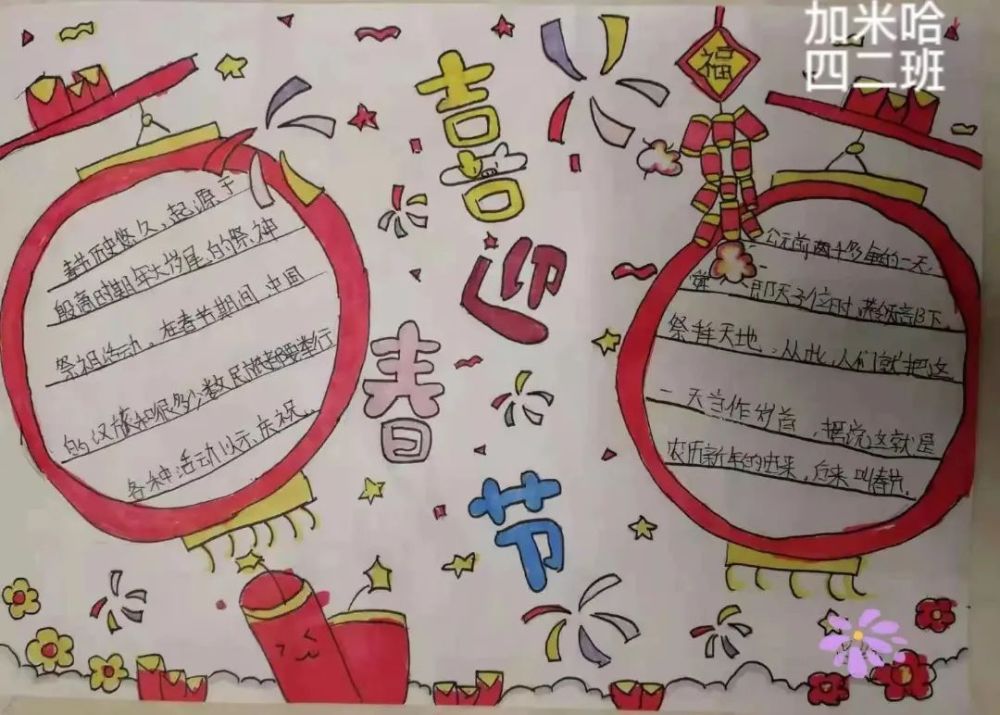 加米哈
四二班
福
喜迎春节
春节历史悠久,起源于
殷商时期年头岁尾的祭神
祭祖活动,在春节期间,中国
的汉族和很多少数民族都要举行
各种活动以示庆祝。
一公元前两千多年的一天,
即天子位时,带领部下
祭拜天地,从此,人们就把这
一天当作岁首,据说这就是
农历新年的由来,后来叫春节。